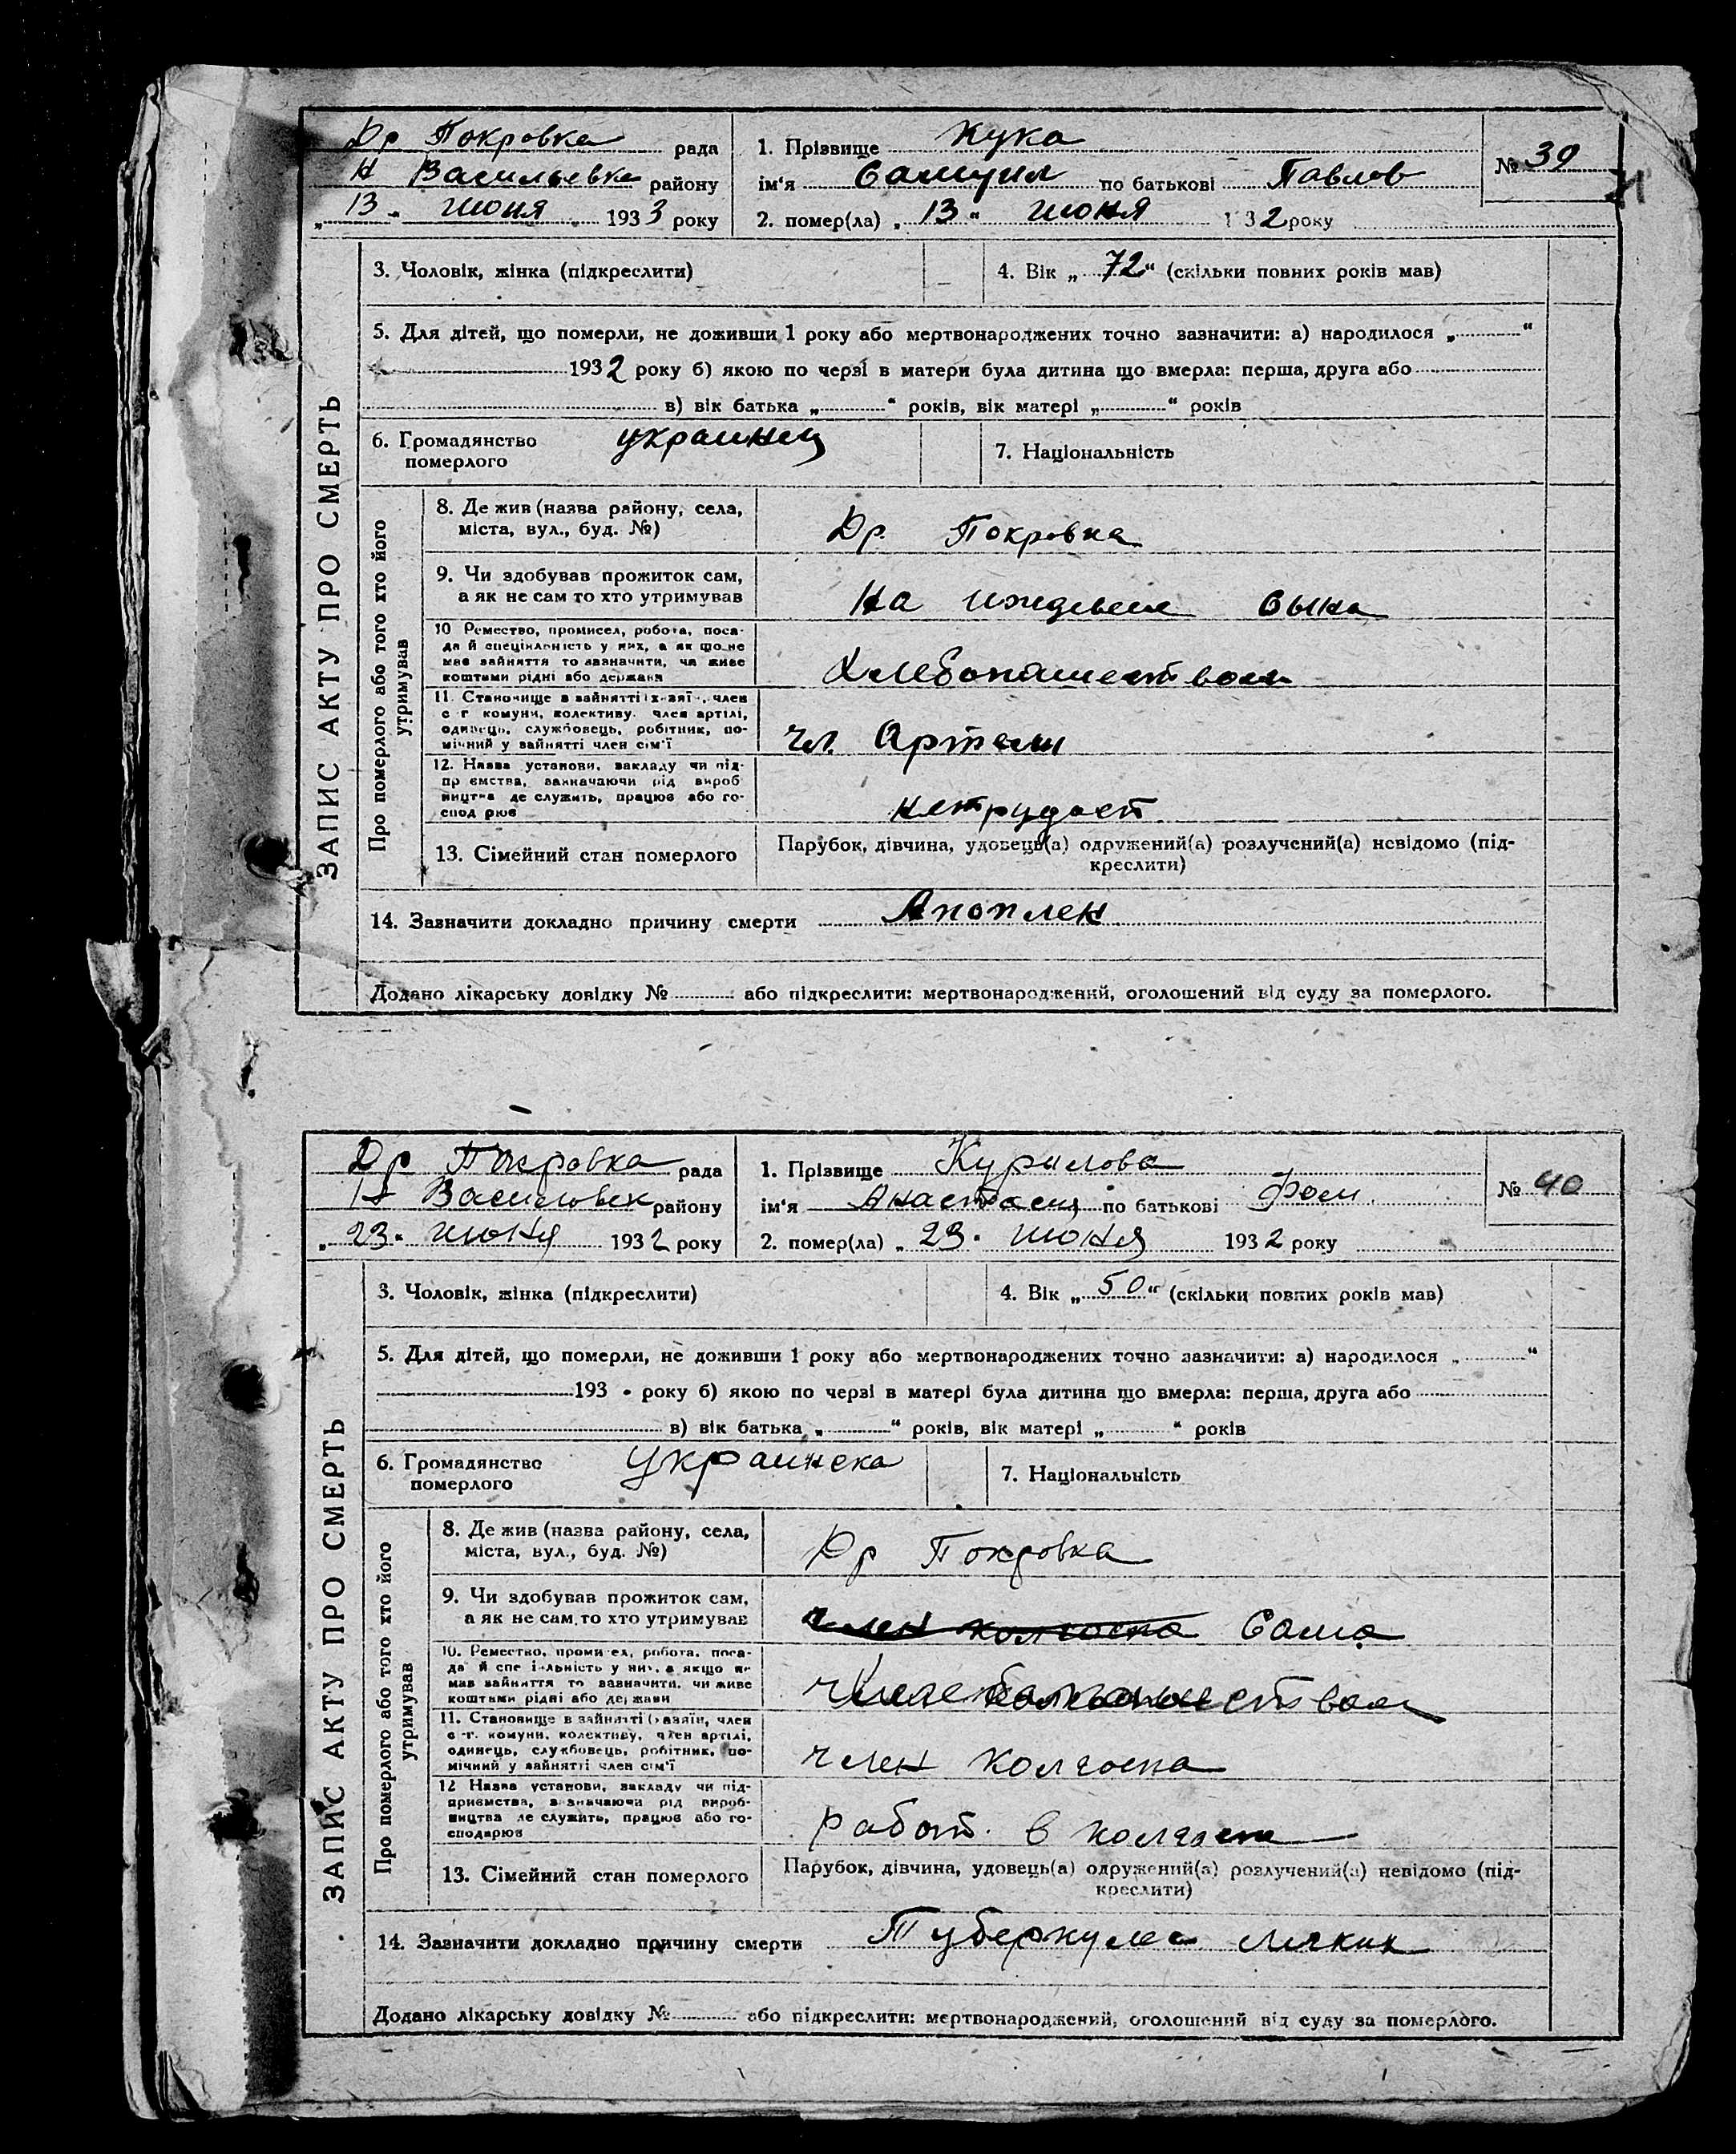 Др Покровка рада
Н Васильевка району
„13“ июня 1933 року
1. Прізвище Кука
ім‘я Самуил по батькові Павлов
2. помер(ла) „13“ июня 132 року
№ 39
3. Чоловік, жінка (підкреслити)
4. Вік „72“ (скільки повних років мав)
5. Для дітей, що померли, не доживши 1 року або мертвонароджених точно зазначити: а) народилося „ “
1932 року б) якою по черзі в матери була дитина що вмерла: перша, друга або
в) вік батька „ “ років, вік матері „ “ років
6. Громадянство украинец
померлого
7. Національність
ЗАПИС АКТУ ПРО СМЕРТЬ
Про померлого або того хто його
утримував
8. Де жив (назва району, села,
міста, вул., буд. №)
Др. Покровка
9. Чи здобував прожиток сам,
а як не сам то хто утримував
На иждевен сына
10 Ремество, промисел, робота, поса-
да й спеціяльність у них, а як що не
мав зайняття то зазначити, чи живе
коштами рідні або держави
Хлебопашеством
11. Становище в зайнятті член
с-г. комуни, колективу, член артілі,
одинець, службовець, робітник, по-
мічний у зайнятті член сім‘ї
чл. Артели
12. Назва установи, закладу чи під-
пр ємства, зазначаючи рід вироб
ництва де служить, працює або го-
спод рює
нетрудосп
13. Сімейний стан померлого
Парубок, дівчина, удовець(а) одружений(а) розлучений(а) невідомо (під-
креслити)
14. Зазначити докладно причину смерти Апоплек
Додано лікарську довідку № або підкреслити: мертвонароджений, оголошений від суду за померлого.
Др Покровка рада
Н Васильевск району
„23“ июня 1932 року
1. Прізвище Курилова
ім‘я Анастасия по батькові Фом.
2. помер(ла) „23“ июня 1932 року
№ 40
3. Чоловік, жінка (підкреслити)
4. Вік „50“ (скільки повних років мав)
5. Для дітей, що померли, не доживши 1 року або мертвонароджених точно зазначити: а) народилося „ “
193 року б) якою по черзі в матері була дитина що вмерла: перша, друга або
в) вік батька „ “ років, вік матері „ “ років
6. Громадянство украинска
померлого
7. Національність
ЗАПИС АКТУ ПРО СМЕРТЬ
Про померлого або того хто його
утримував
8. Де жив (назва району, села,
міста, вул., буд. №)
Др Покровка
9. Чи здобував прожиток сам,
а як не сам, то хто утримував
член колгоспа Сама
10. Ремество, промисел, робота, поса-
да й спеціяльність у них, а якщо не
мав зайняття то зазначити, чи живе
коштами рідні або держави
11. Становище в зайнятті (хазяїн, член
с-г. комуни, колективу, член артілі,
одинець, службовець, робітник, по-
мічний у зайнятті член сім‘ї
член колгоспа
12 Назва установи, закладу чи під-
приємства, зазначаючи рід вироб-
ництва де служить, працює або го-
сподарює
работ. в колгоспе
13. Сімейний стан померлого
Парубок, дівчина, удовець(а) одружений(а) розлучений(а) невідомо (під-
креслити)
14. Зазначити докладно причину смерти Туберкулез легких
Додано лікарську довідку № або підкреслити: мертвонароджений, оголошений від суду за померлого.